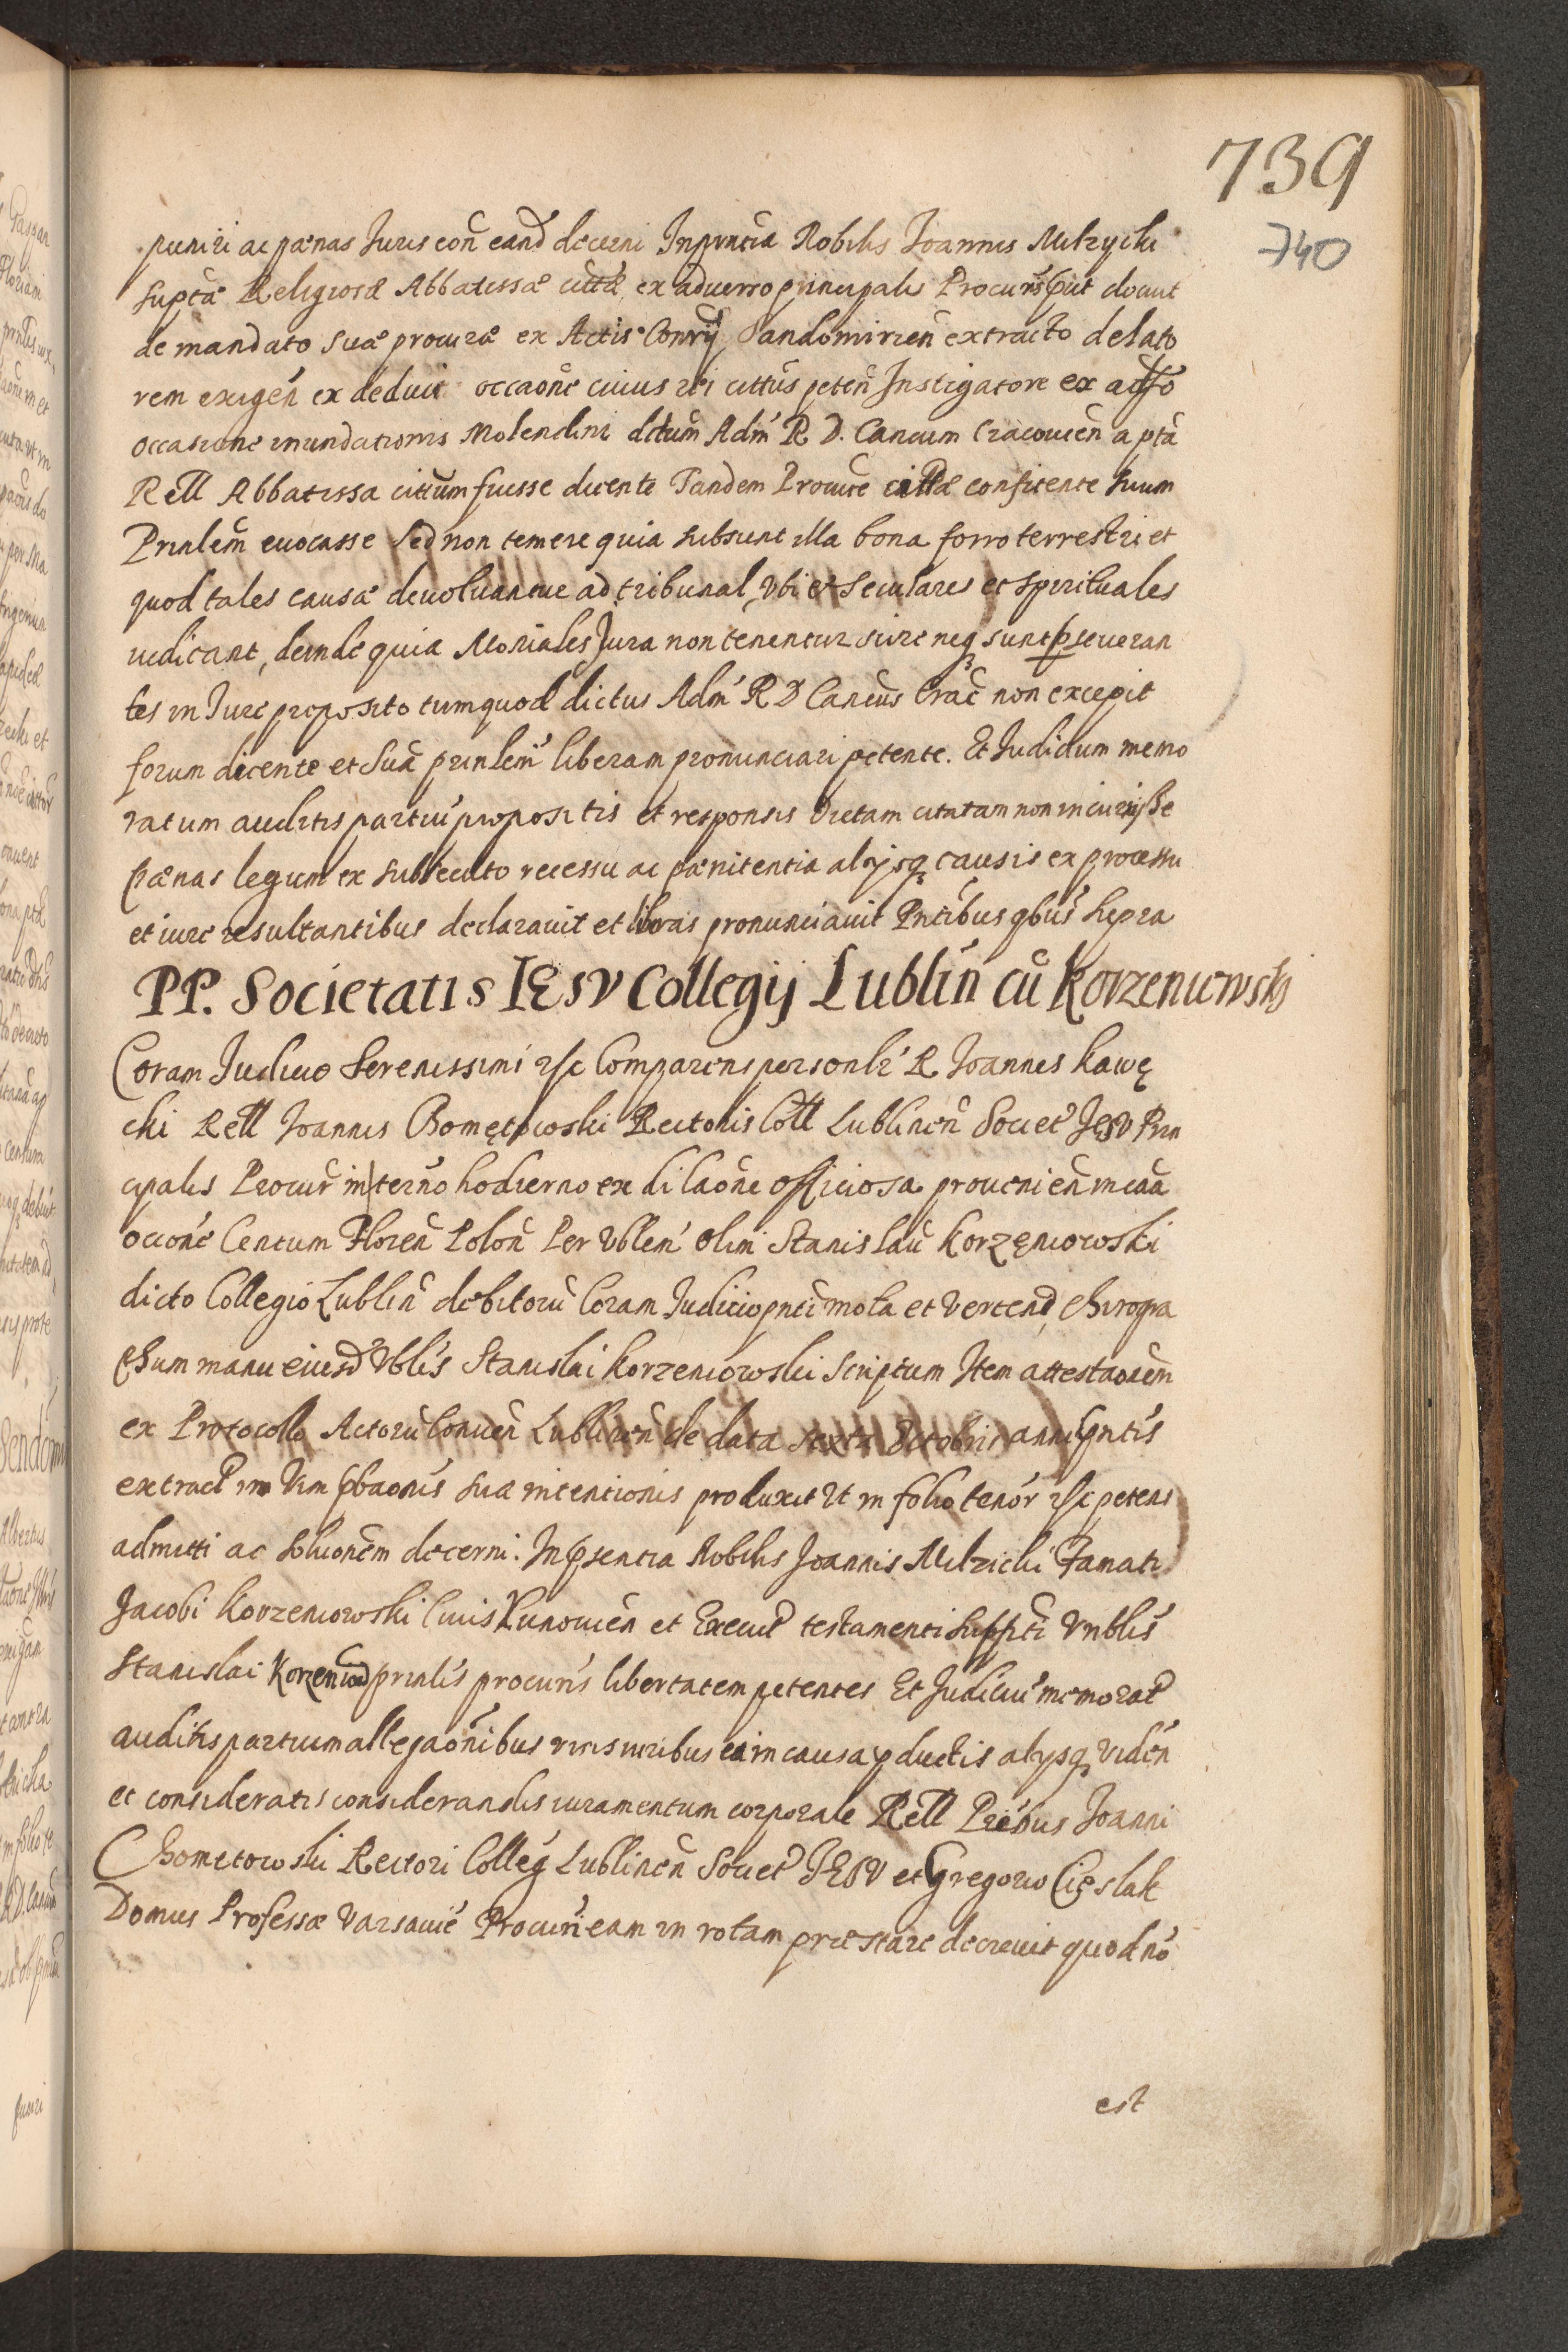 739
740
puniri ac pænas Juris con̄ eand decerni Inpn̄tia Nobilis Joannis Milzycki
supt̄æ Religiosæ Abbatissæ citt̄æ ex aduerso principalis Procur̄is put docuit
de mandato suæ procuræ ex Actis Consrij Sandomirien̄ extracto delato
rem exigen̄ ex deduit occaōne cuius rei citt̄us peten̄ Instigatore ex adsō
occasione inundationis Molendini dictum Adm̄ R D. Cancum Cracouien̄ a pt̄a
Rell Abbatissa cittum fuisse dicente Tandem Procure citt̄æ confitente suum
Prinlem̄ euocasse Sed non temere quia subsunt illa bona forro terrestri et
quod tales causæ deuoluantur ad tribunal, vbi et seculares et spirituales
iudicant, deinde quia Moniales Jura non tenentur scire neq sunt pseueran
tes in Jure proposito tumquod dictus Adm̄ R D Cancus Crac̄ non excepit
forum dicente et Suā prinlem̄ liberam pronunciari petente. Et Judicium memo
ratum auditis partiū propositis et responsis Dictam citatam non incurrisse
pænas legum ex subsecuto recessu ac pænitentia alijsq causis ex processu
et iure resultantibus declarauit et libras pronunciauit Pn̄tibus qbus supra
PP. Societatis IESV Collegij Lublin̄ cū Korzeniowski
Coram Judicio Serenissimi etc Comparens personlr̄ R Joannes kawę
cki Rell Joannis Chomętowski Rectoris Coll Lublinen̄ Societ JESV Prin
cipalis Procur̄ in tern̄o hodierno ex dilaōne officiosa prouenien̄ in caā
occonē Centum Floren̄ Polon̄ Per Vblem̄ olim Stanislaū Korzęniowski
dicto Collegio Lublin̄ debitorū Coram Judicio pnti mota et Verten̄, Chirogra
phum manu eiusd Vblis Stanislai Korzeniowski Scriptum Item attestaonem̄
ex Protocollo Actorū Conuen̄ Lublinen̄ de data sexta Octobris anni pntis
extract in Vim pbaonis suæ intentionis produxit Ut in folio tenor̄ etc petens
admitti ac soluonem̄ decerni. In psentia Nobilis Joannis Milzicki Famati
Jacobi Korzeniowski Ciuis Kunouien̄ et Execut testamenti suppti Vnblis
Stanislai Korzeniow prinlis procuris libertatem petentes Et Judiciū memorat
auditis partium allegaōnibus visis iuribus ea in causa pductis alysq viden̄
et consideratis considerandis iuramentum corporale Rell Pribus Joanni
Chometowski Rectori Colleḡ Lublinen̄ Societ JESV et Gregorio Cięslak
Domus Professæ Varsauie Procuri eam in rotam præstare decreuit quod nō
est